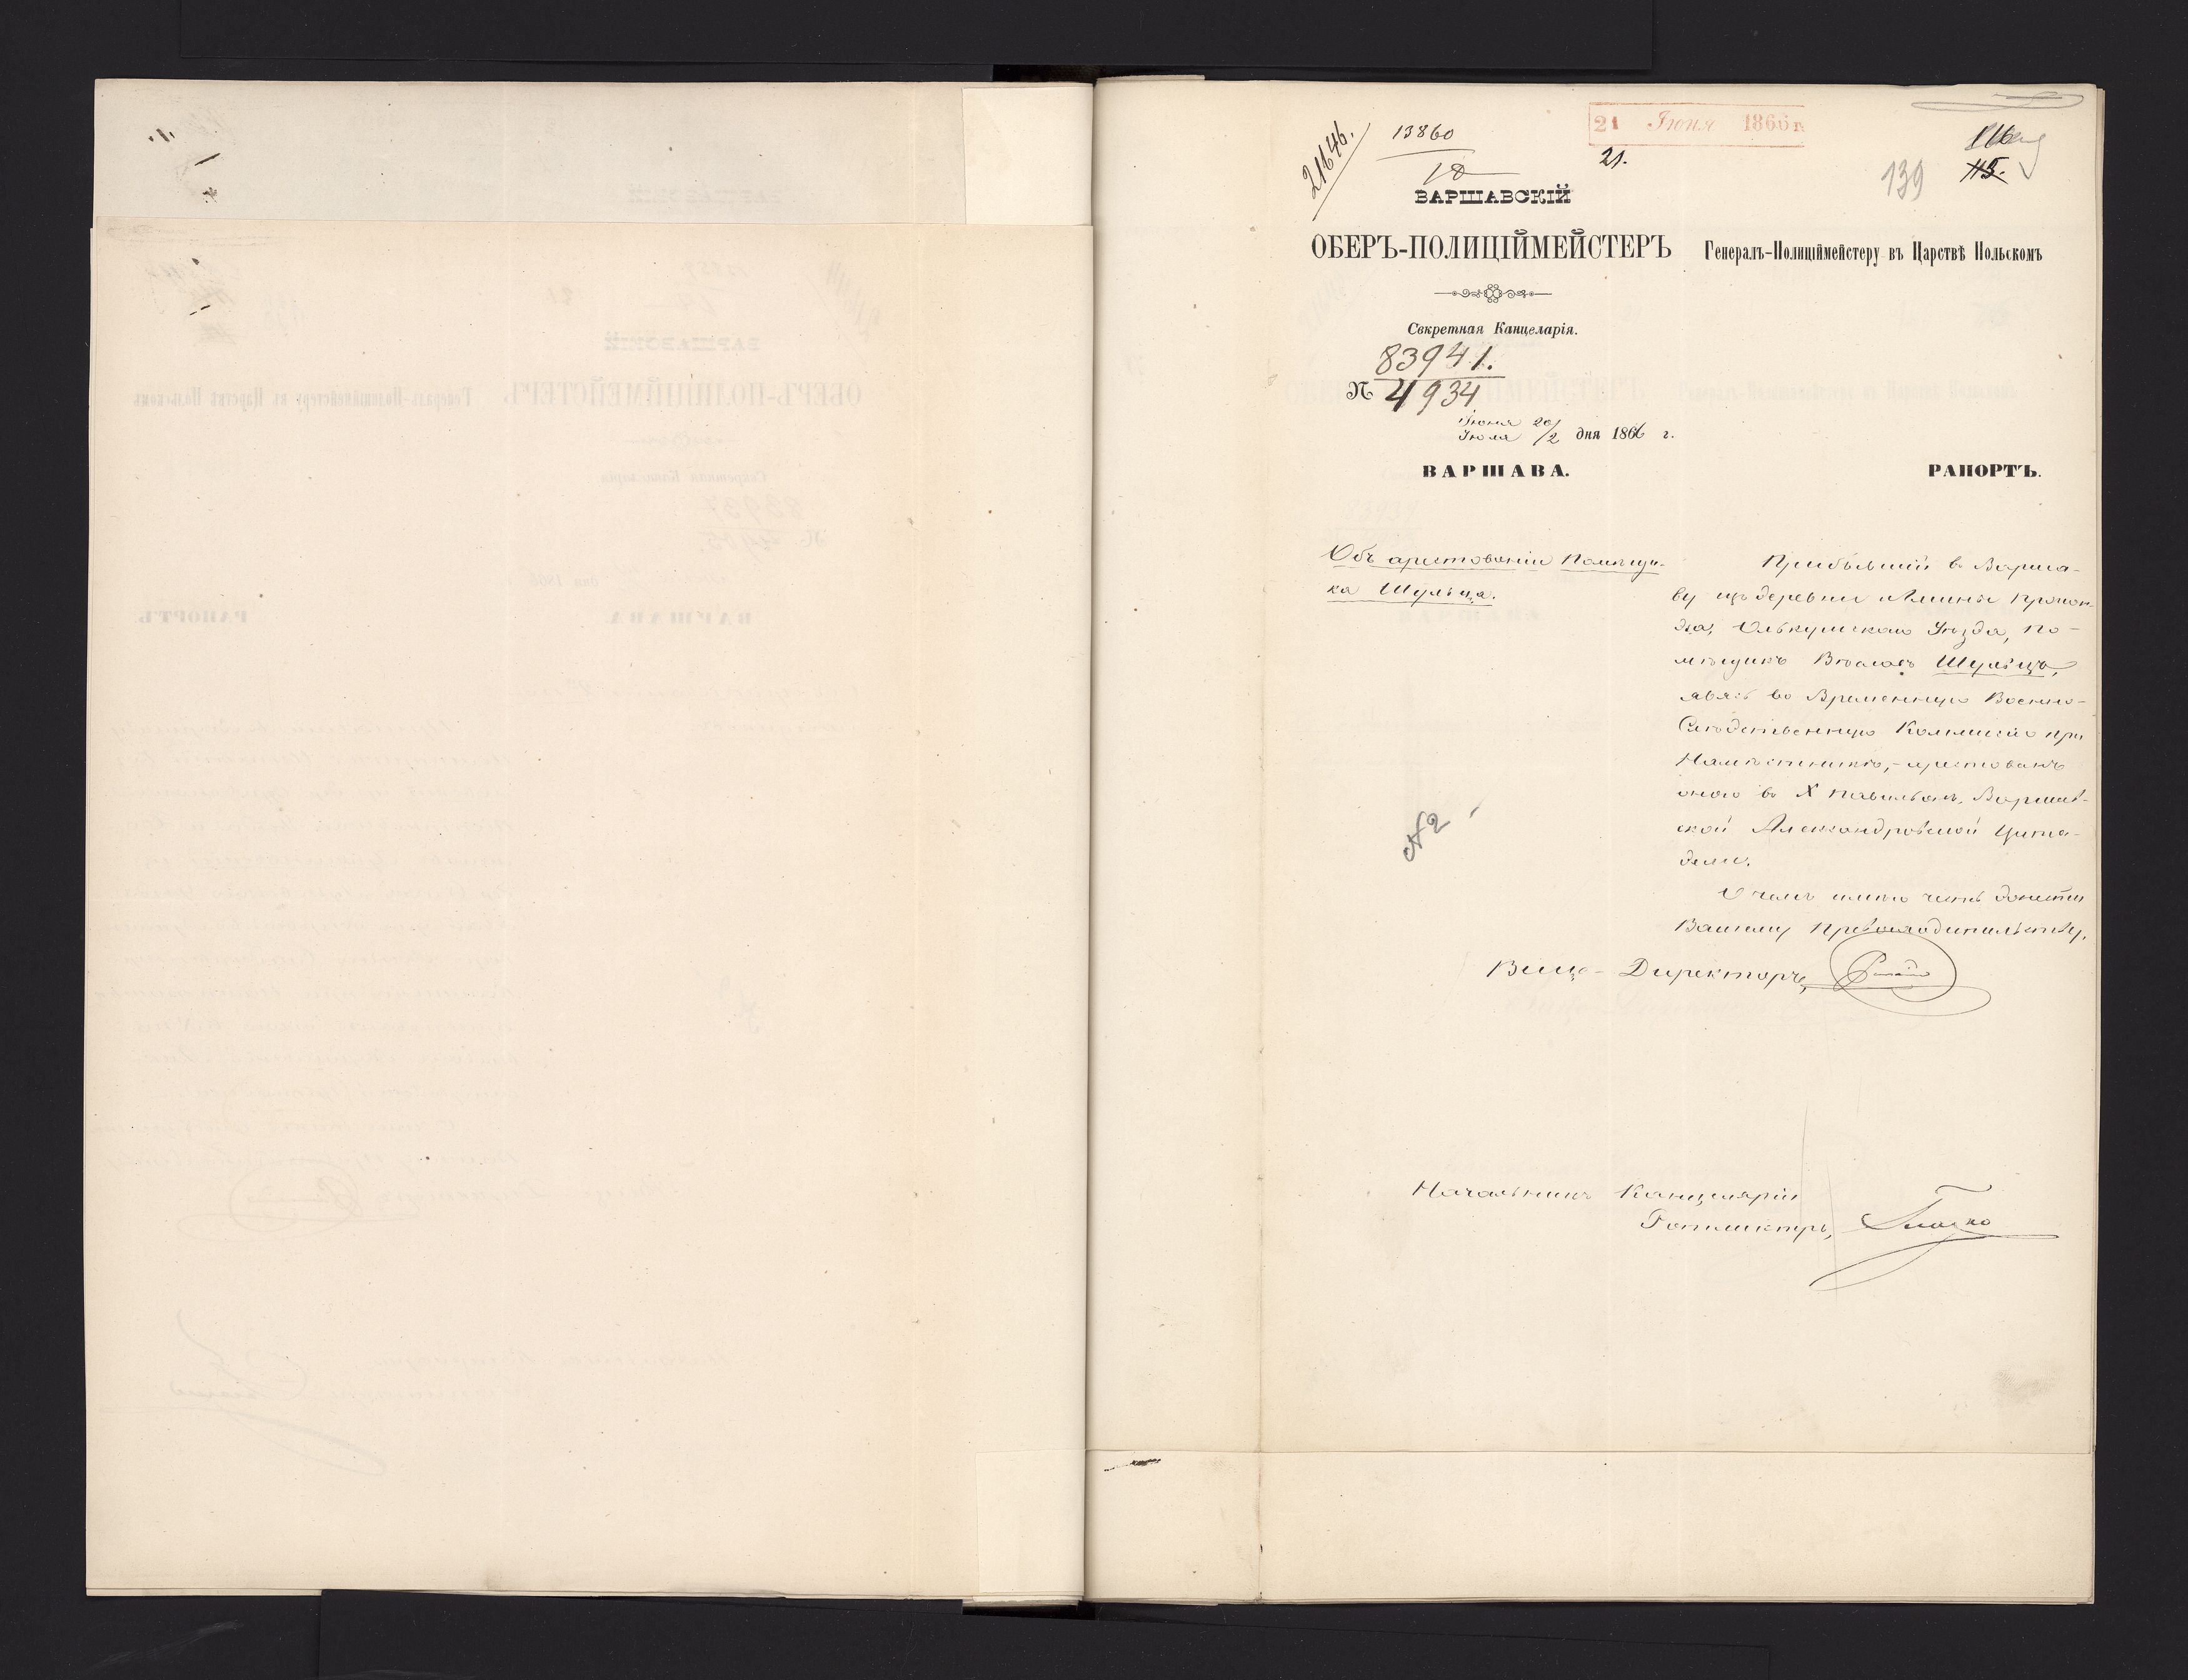 21646.
13860
10
21 Іюня 1866 г.
21.
116
115.
139
ВАРШАВСКІЙ
ОБЕРЪ-ПОЛИЦІЙМЕЙСТЕРЪ
Генералъ-Полиціймейстеру въ Царствѣ Польскомъ
Секретная Канцелярія.
83941.
№ 4934
Іюня 20
Іюля /2 дня 1866 г.
ВАРШАВА.
РАПОРТЪ.
Объ арестованіи Помѣщи-
ка Шульца.
Прибывшій въ Варша-
ву изъ деревни
Олькушскаго Уѣзда, по-
мѣщикъ Шульцъ,
явясь во Временную Военно-
Слѣдственную Коммисію при
Намѣстникѣ,- арестованъ
оною въ X павильонъ, Варшав-
ской Александровской Цита-
дели.
О чемъ имѣю честь донести
Вашему Превосходительству.
Вице-Директоръ,
№2
Начальникъ Канцеляріи
Ротмистръ,